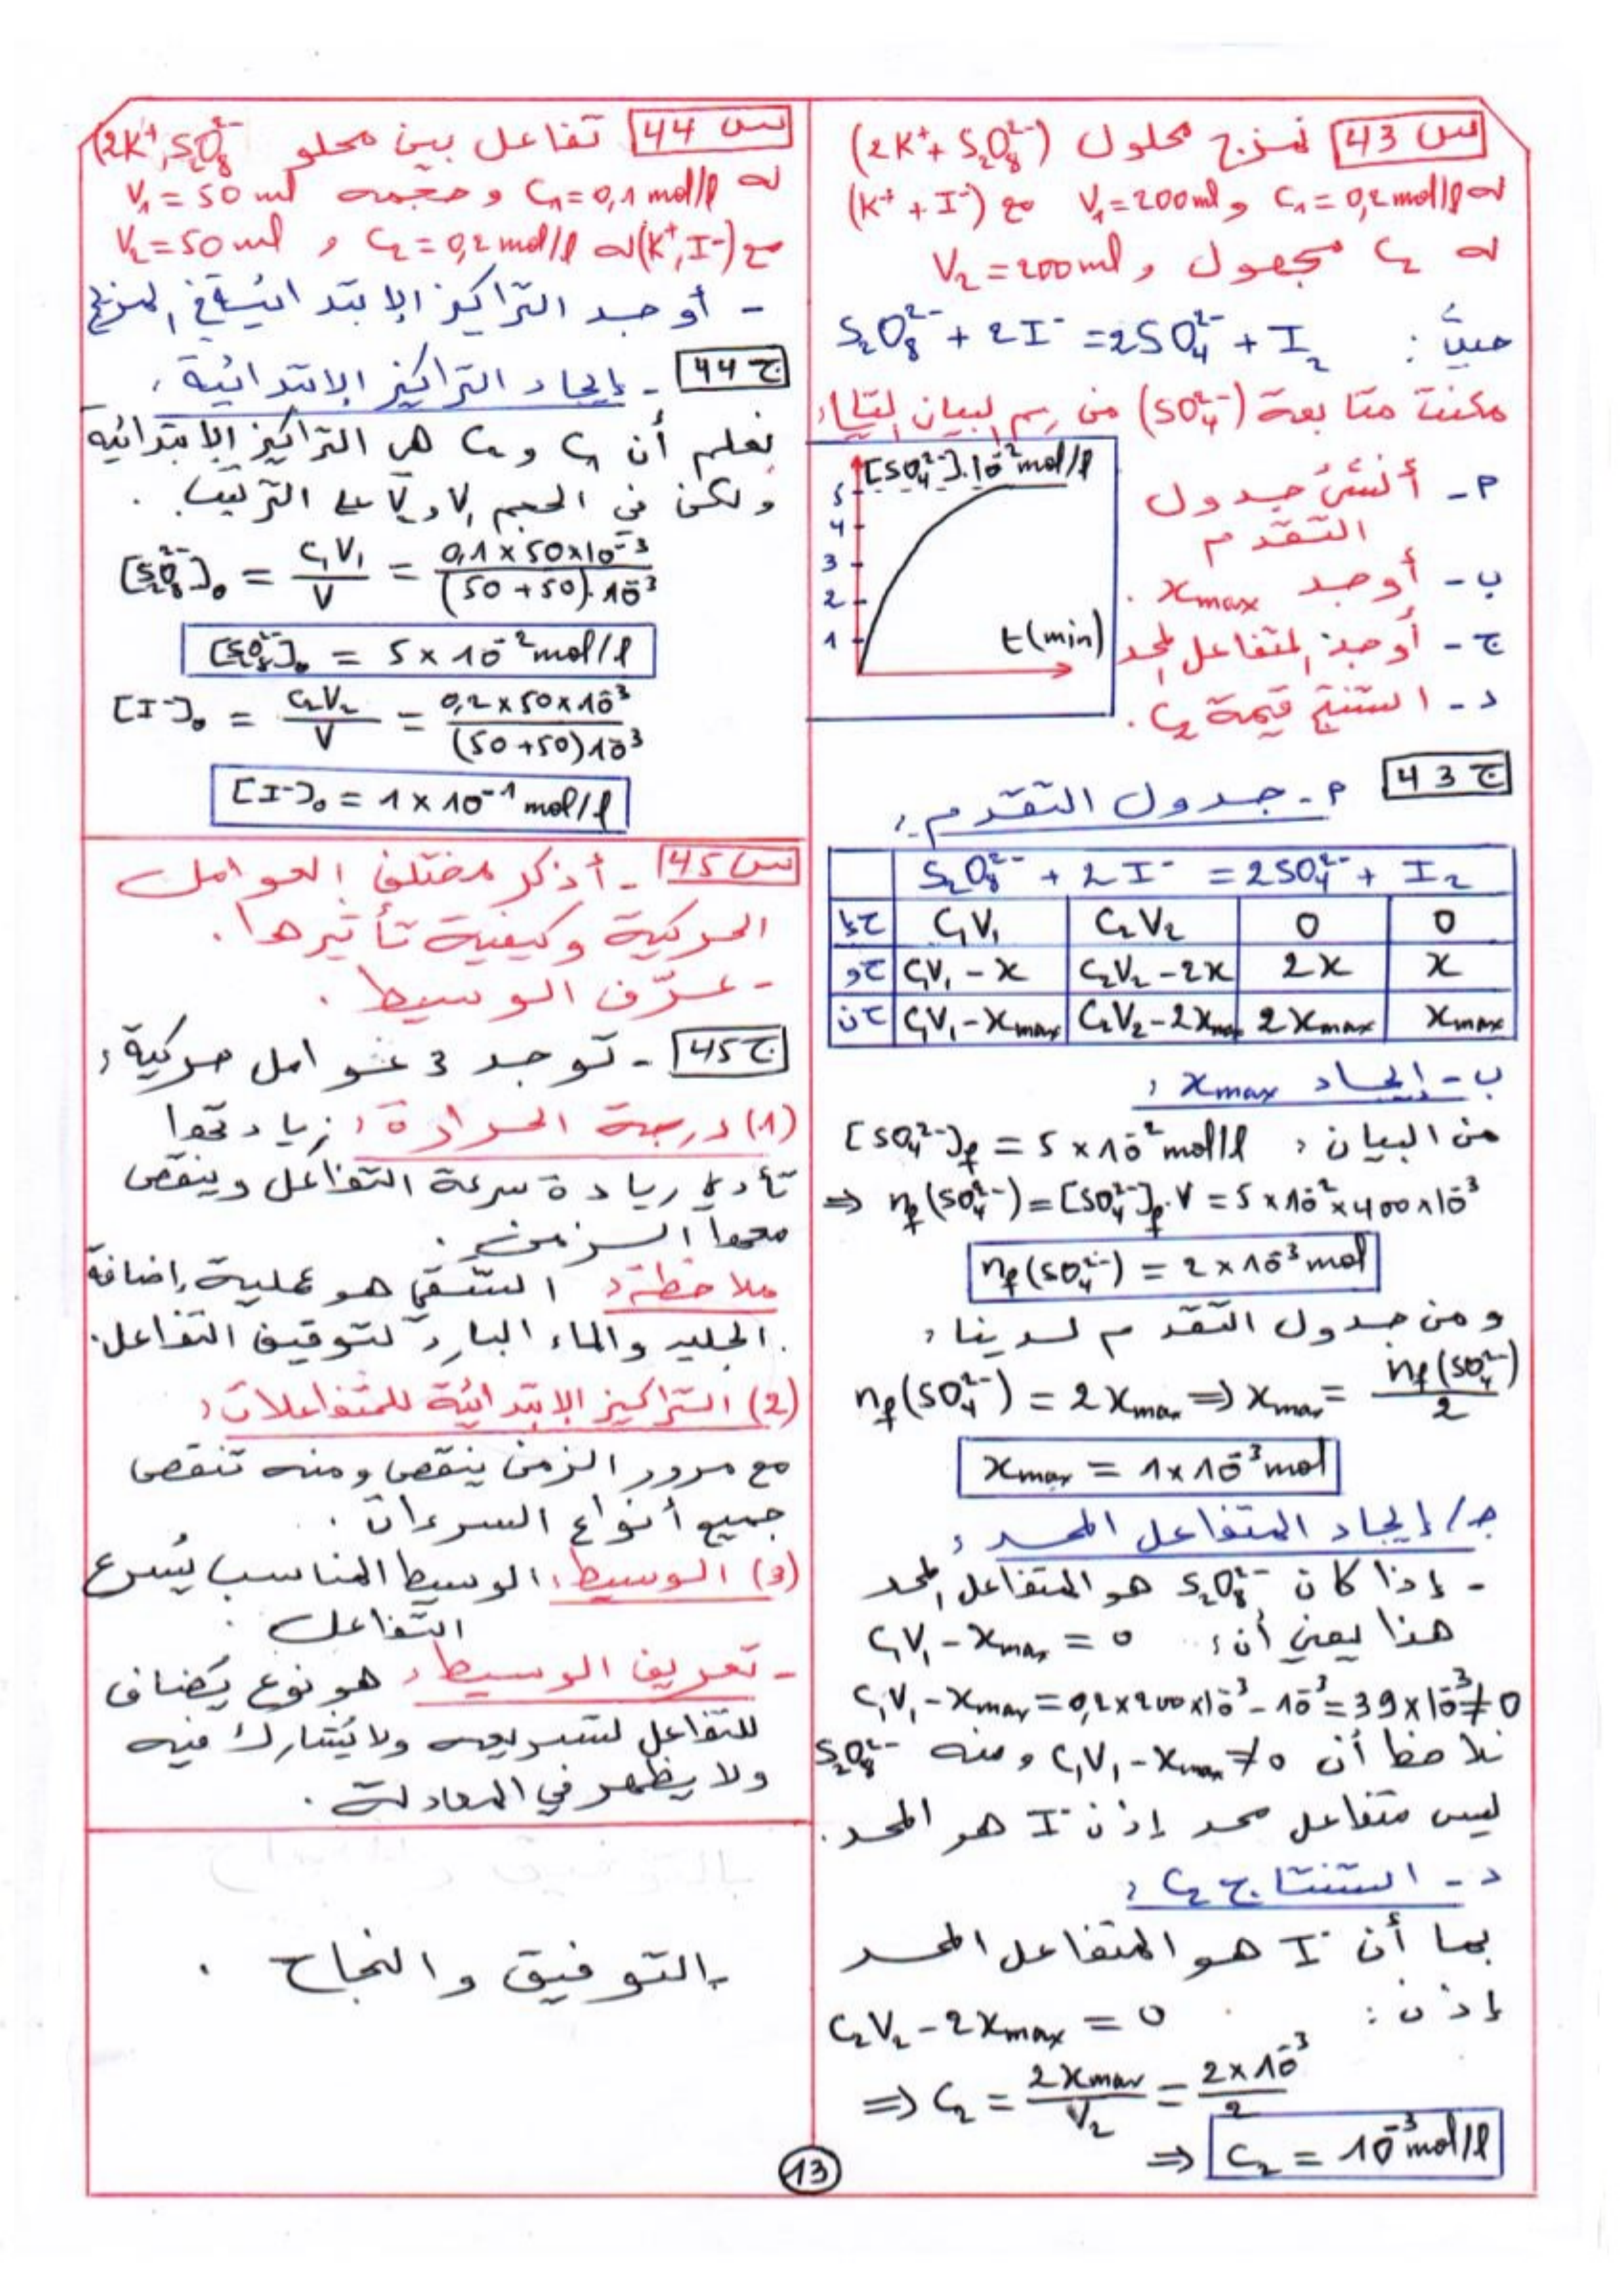 س 43 نمزج محلول (2K⁺ + S₂O₈²⁻)
له C₁ = 0,2 mol/l و V₁ = 200 ml مع (K⁺ + I⁻)
له C₂ مجهول و V₂ = 200 ml
حيث : S₂O₈²⁻ + 2I⁻ = 2SO₄²⁻ + I₂
مكنت متابعة (SO₄²⁻) من رسم البيان التالي :
[SO₄²⁻].10⁻² mol/l
5
4
3
2
1
t(min)
م - أنشئ جدول
التقدم
ب - أوجد xmax .
ج - أوجد المتفاعل المحد
د - استنتج قيمة C₂ .
ج 43
م - جدول التقدم :
S₂O₈²⁻ + 2I⁻ = 2SO₄²⁻ + I₂
ح إ C₁V₁ C₂V₂ 0 0
ح و C₁V₁ - x C₂V₂ - 2x 2x x
ح ن C₁V₁ - xmax C₂V₂ - 2xmax 2xmax xmax
ب - إيجاد xmax :
من البيان : [SO₄²⁻]f = 5 × 10⁻² mol/l
⇒ nf(SO₄²⁻) = [SO₄²⁻]f . V = 5 × 10⁻² × 400 × 10⁻³
nf(SO₄²⁻) = 2 × 10⁻³ mol
ومن جدول التقدم لدينا :
nf(SO₄²⁻) = 2xmax ⇒ xmax = nf(SO₄²⁻) / 2
xmax = 1 × 10⁻³ mol
ج / إيجاد المتفاعل المحد :
- إذا كان S₂O₈²⁻ هو المتفاعل المحد
هذا يعني أن : C₁V₁ - xmax = 0
C₁V₁ - xmax = 0,2 × 200 × 10⁻³ - 10⁻³ = 39 × 10⁻³ ≠ 0
نلاحظ أن C₁V₁ - xmax ≠ 0 ومنه S₂O₈²⁻
ليس متفاعل محد إذن I⁻ هو المحد .
د - استنتاج C₂ :
بما أن I⁻ هو المتفاعل المحد
إذن : C₂V₂ - 2xmax = 0
⇒ C₂ = 2xmax / V₂ = 2 × 10⁻³ / 2
⇒ C₂ = 10⁻³ mol/l
س 44 تفاعل بين محلو (2K⁺, S₂O₈²⁻)
له C₁ = 0,1 mol/l و حجمه V₁ = 50 ml
مع (K⁺, I⁻) له C₂ = 0,2 mol/l و V₂ = 50 ml
- أوجد التراكيز الإبتدائية في المزيج
ج 44 - إيجاد التراكيز الابتدائية :
نعلم أن C₁ و C₂ هي التراكيز الإبتدائية
ولكن في الحجم V₁ و V₂ على الترتيب .
[S₂O₈²⁻]₀ = C₁V₁ / V = 0,1 × 50 × 10⁻³ / (50 + 50).10⁻³
[S₂O₈²⁻]₀ = 5 × 10⁻² mol/l
[I⁻]₀ = C₂V₂ / V = 0,2 × 50 × 10⁻³ / (50 + 50)10⁻³
[I⁻]₀ = 1 × 10⁻¹ mol/l
س 45 - أذكر مختلف العوامل
الحركية وكيفية تأثيرها .
- عرّف الوسيط .
ج 45 - توجد 3 عوامل حركية :
(1) درجة الحرارة : زيادتها
تأدي زيادة سرعة التفاعل وينقص
معها الزمن .
ملاحظة : السقي هو عملية إضافة
الجليد والماء البارد لتوقيف التفاعل .
(2) التراكيز الإبتدائية للمتفاعلات :
مع مرور الزمن ينقص ومنه تنقص
جميع أنواع السرعات .
(3) الوسيط : الوسيط المناسب يُسرع
التفاعل .
- تعريف الوسيط : هو نوع يُضاف
للتفاعل لتسريعه ولا يُشارك فيه
ولا يظهر في المعادلة .
بالتوفيق والنجاح .
13